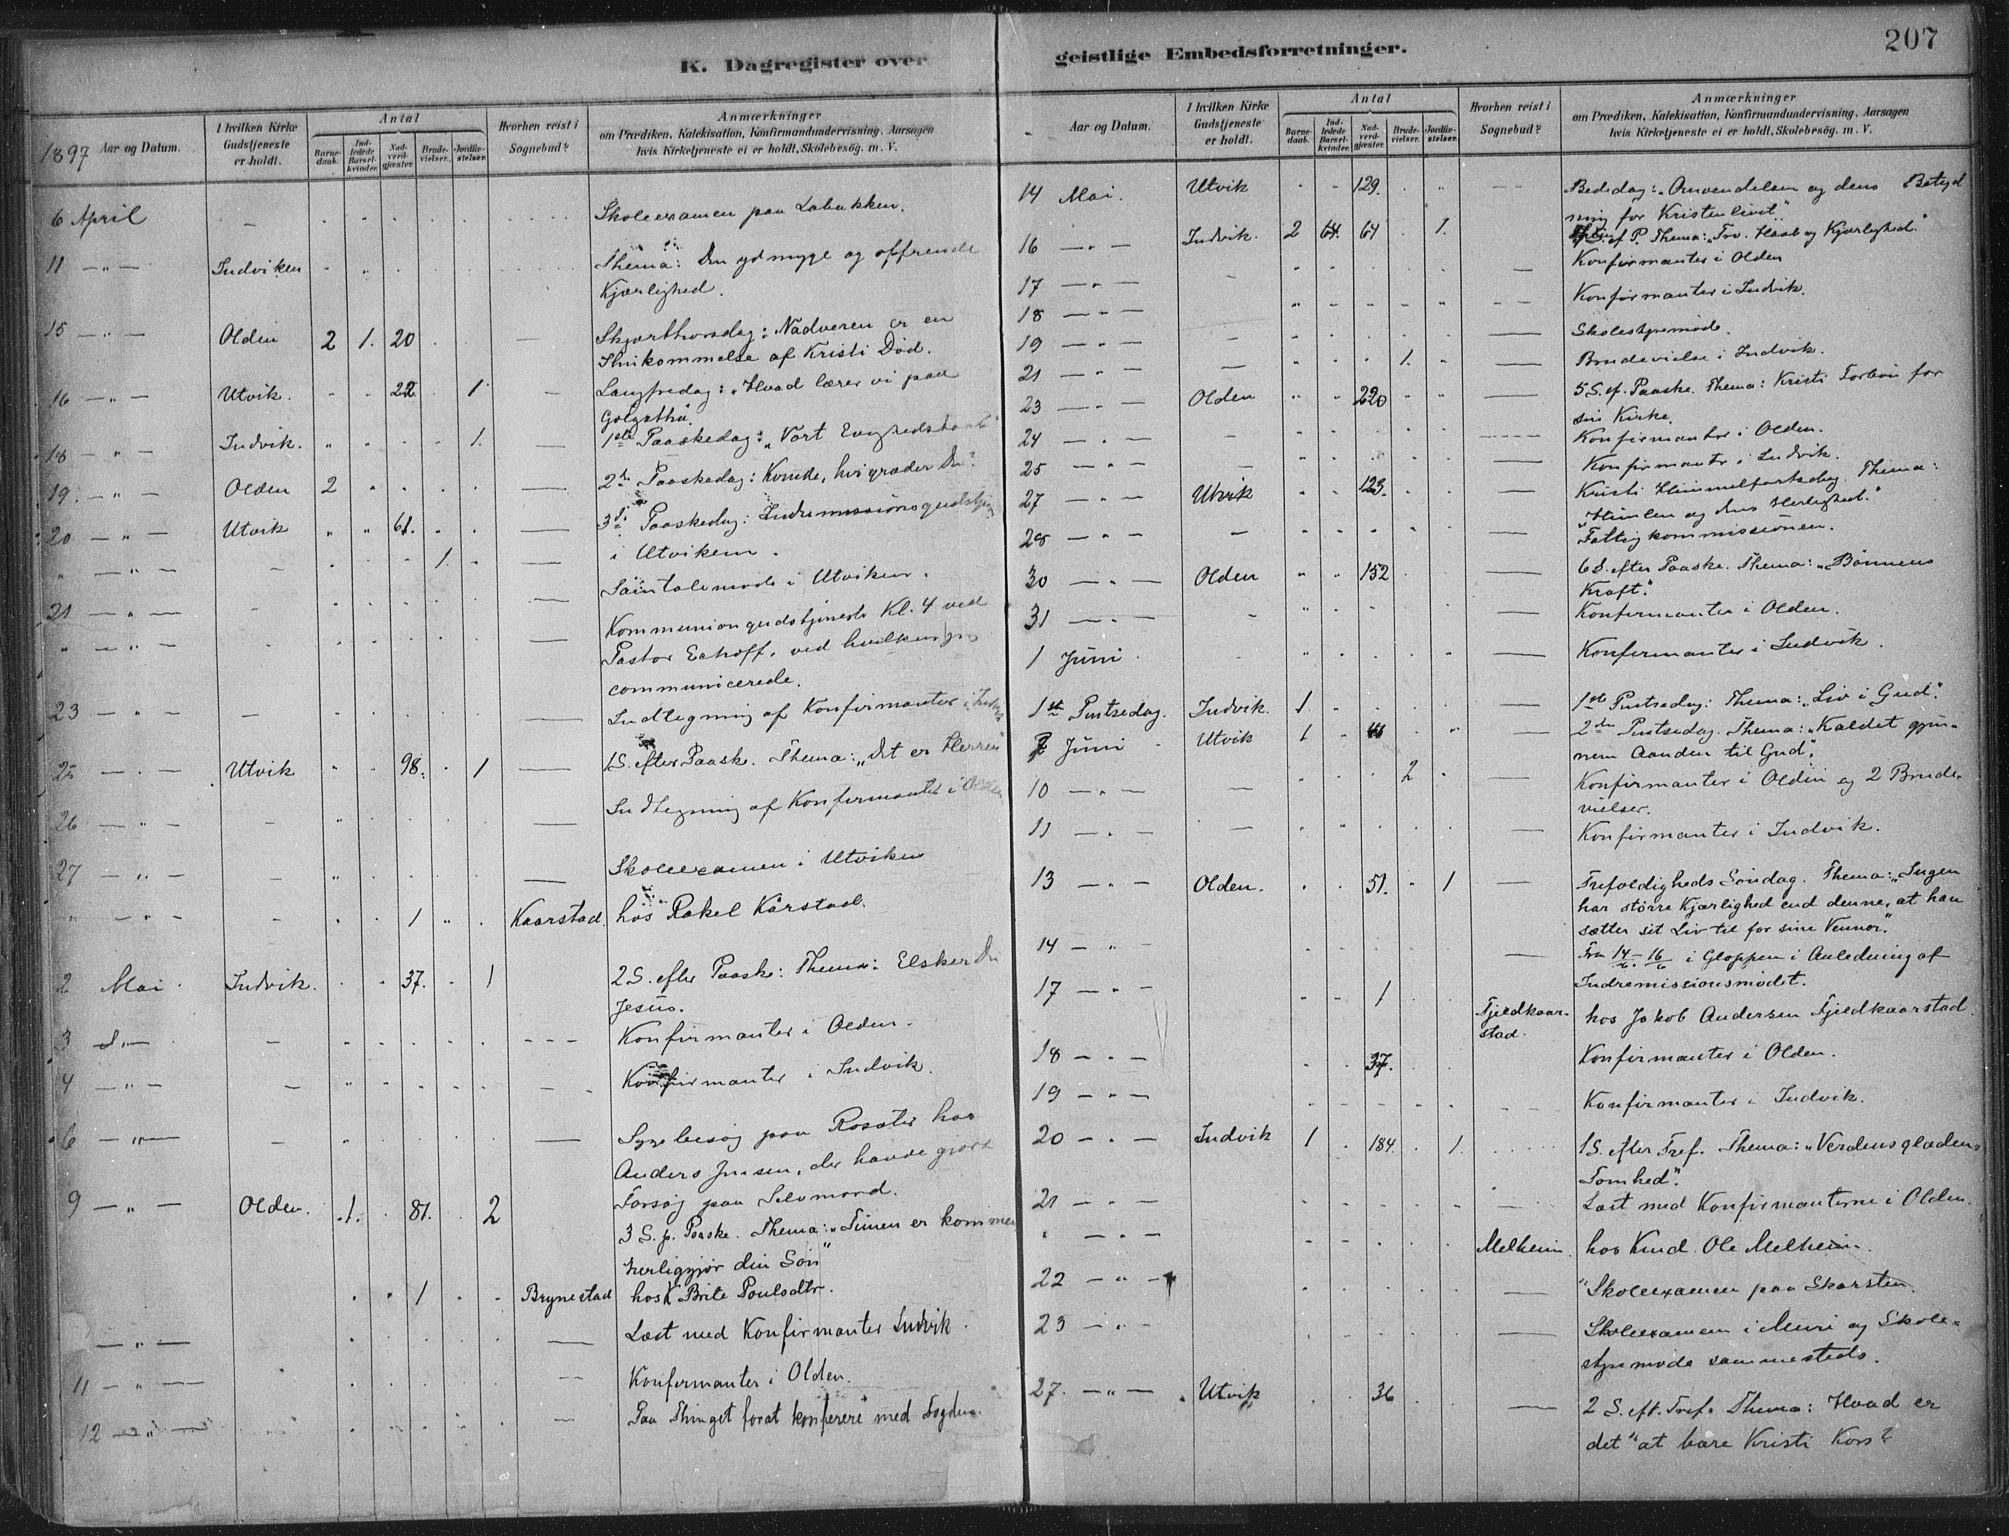 K. Dagregister over
1897 Aar og Datum.
I hvilken Kirke Gudstjeneste er holdt.
Antal
Barnedaab.
Indledede Barselkvinder.
Nadverdgjæster.
Brudevielser.
Jordfæstelser.
Hvorhen reist i Sognebud?
Anmærkninger
om Prædiken, Katekisation, Konfirmandundervisning, Aarsagen
hvis Kirketjeneste ei er holdt, Skolebesøg. m. V.
6 April - Skoleexamen paa
11 — " — Indviken Thema: Den ydmyge og offrende
Kjærlighed.
15 — " — Olden 2 1. 20 Skjærthorsdag: Nadveren er en
Ihukommelse af Kristi Død.
16 — " — Utvik. 22 1 Langfredag: "Hvad lærer vi paa
Golgatha"
18 — " — Indvik. 1. 1ste Paaskedag: "Vort Evighedshaab"
19. — " — Olden 2 2den Paaskedag: Kvinde, hvi græder Du?
20 — " — Utvik 61. 3die Paaskedag: Indremissionsgudstjen
" — " — 1. i Utviken.
21 — " — Samtalemøde i Utviken.
" — " — Kommuniongudstjeneste Kl. 4 ved
Pastor ved hvilken
communicerede.
23 — " — Indtegning af Konfirmanter i Indvik
25 — " — Utvik 98. 1 1 S. efter Paaske. Thema: "Det er Herren"
26 — " — Indtegning af Konfirmanter i Olden
27 — " — Skoleexamen i Utviken
" — " — 1 Kaarstad. hos Rakel Kårstad.
2 Mai Indvik. 37. 1 2 S. efter Paaske: Thema: Elsker Du
Jesus.
3 Konfirmanter i Olden.
4 — " — Konfirmanter i Indvik.
6 — " — Sygebesøg paa hos
Anders der havde gjort
9 — " — Olden. 1. 81. 2 Forsøg paa Selvmord.
3 S. p. Paaske. Thema: "Timen er kommen
herliggjør din Søn"
1 Brynestad hos Brite Poulsdtr.
— " — Læst med Konfirmanter Indvik.
11 — " — Konfirmanter i Olden.
12 — " — Paa Thinget forat konferere med Fogden.
geistlige Embedsforretninger.
207
Aar og Datum.
I hvilken Kirke Gudstjeneste er holdt.
Antal
Barnedaab.
Indledede Barselkvinder.
Nadverdgjæster.
Brudevielser.
Jordfæstelser.
Hvorhen reist i Sognebud?
Anmærkninger
om Prædiken, Katekisation, Konfirmandundervisning, Aarsagen
hvis Kirketjeneste ei er holdt, Skolebesøg. m. V.
14 Mai. Utvik 129. Bededag: "Omvendelsen og dens Betyd
ning for Kristenlivet."
16 — " — Indvik. 2 64. 64 1. S. ef P. Thema: "Tro, Haab og Kjærlighed."
17 — " — Konfirmanter i Olden
18 — " — Konfirmanter i Indvik.
19 — " — Skolestyremøde.
21 — " — 1. Brudevielse i Indvik.
23 — " — Olden 220 5 S. ef. Paaske. Thema: Kristi Forbøn for
sin Kirke.
24 — " — Konfirmanter i Olden.
25 — " — Konfirmanter i Indvik.
27 — " — Utvik 123. Kristi Himmelfartsdag. Thema:
"Himlen og dens Herlighed."
28 — " — Fattigkommissionen.
30 — " — Olden 152 6 S. efter Paaske. Thema: "Bønnens
Kraft."
31 — " — Konfirmanter i Olden.
1 Juni Konfirmanter i Indvik.
1ste Pintsedag. Indvik. 1 1ste Pintsedag: Thema: "Liv i Gud".
7 Juni Utvik 1 2den Pintsedag. Thema: "Kaldet gjen-
nem Aanden til Gud".
10 — " — 2 Konfirmanter i Olden og 2 Brude-
vielser.
11 — " — Konfirmanter i Indvik.
13 — " — Olden. 51. 1 Trefoldigheds Søndag. Thema: "Ingen
har større Kjærlighed end denne, at han
sætter sit Liv til for sine Venner."
14 — " — Fra 14/6 - 16/6 i Gloppen i Anledning af
Indremissionsmødet.
17 — " — 1 Fjeldkaar-
stad. hos Jakob Andersen Fjeldkaarstad.
18 — " — 37. Konfirmanter i Olden.
19 — " — Konfirmanter i Indvik.
20 — " — Indvik 1 184. 1. 1 S. efter Tref. Thema: "Verdensglædens
Tomhed".
21 — " — Læst med Konfirmanterne i Olden.
" — " — Melheim. hos Knud Ole Melheim.
22 — " — Skoleexamen paa Skarsten.
23 — " — Skoleexamen i Muri og Skole-
styremøde sammesteds.
27. — " — Utvik 36 2 S. eft. Tref. Thema: Hvad er
det at bære Kristi Kors?